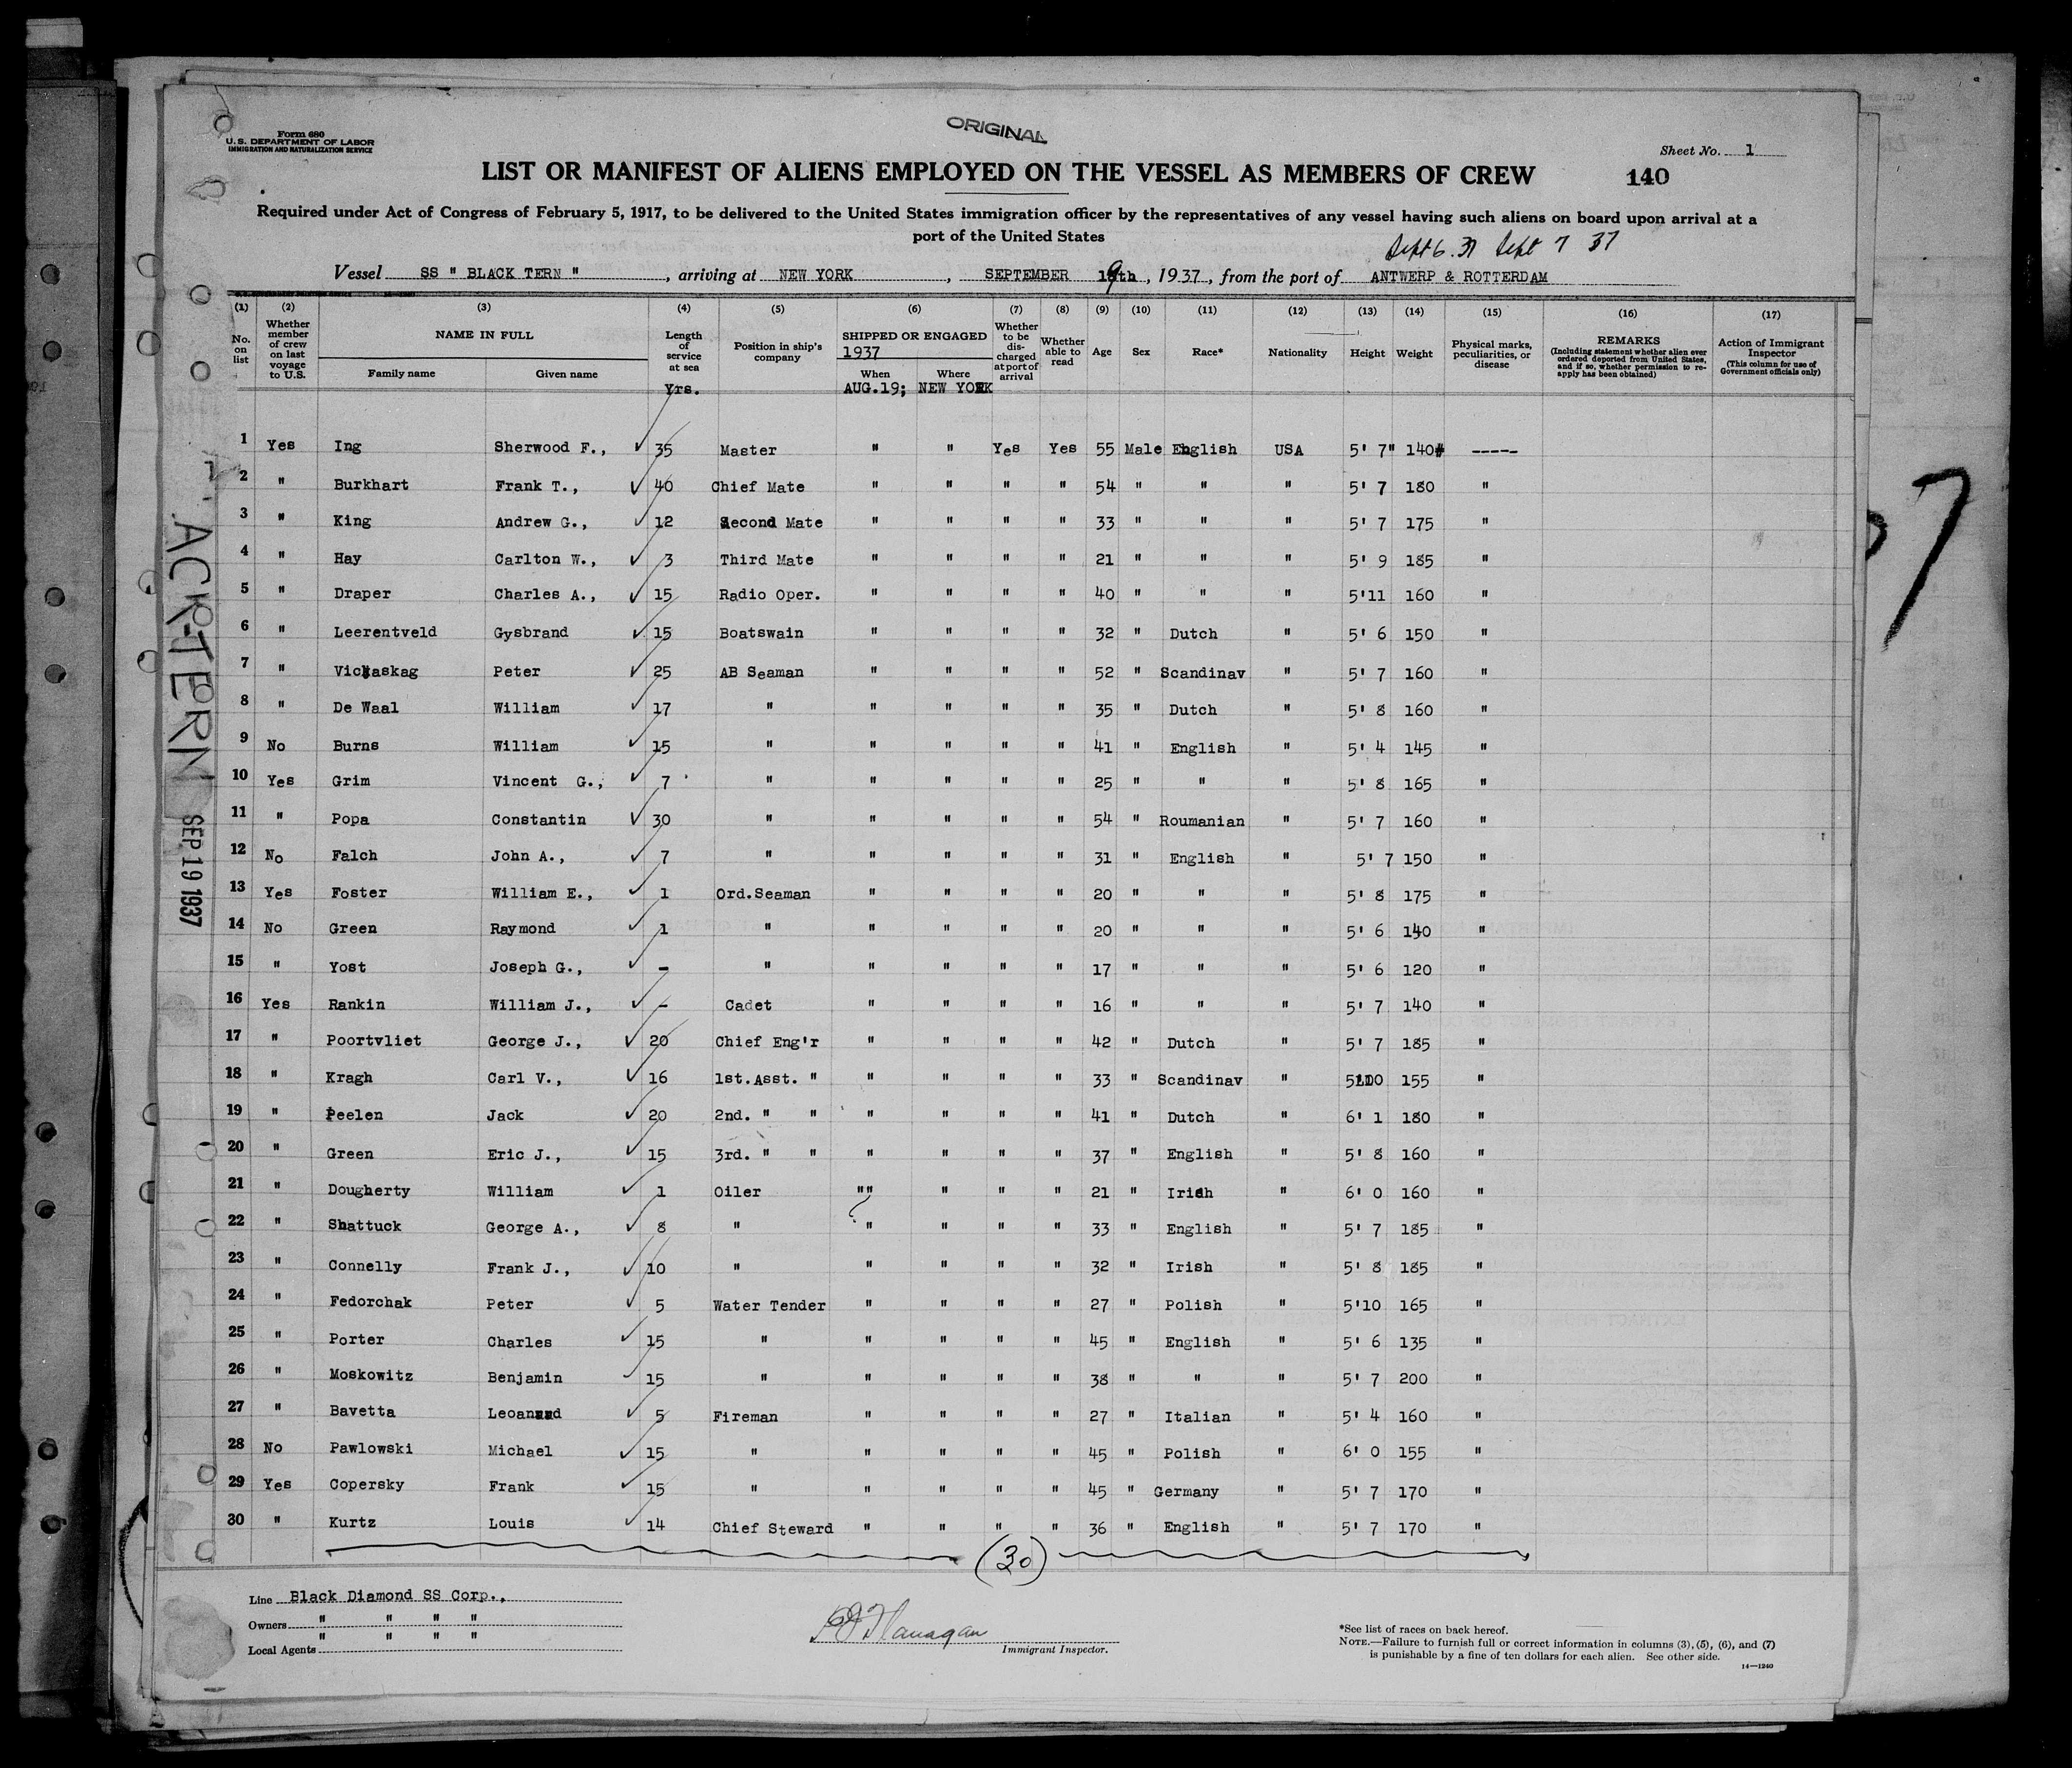 Form 680
U. S. DEPARTMENT OF LABOR
IMMIGRATION AND NATURALIZATION SERVICE
ORIGINAL
Sheet No. 1
LIST OR MANIFEST OF ALIENS EMPLOYED ON THE VESSEL AS MEMBERS OF CREW 140
Required under Act of Congress of February 5, 1917, to be delivered to the United States immigration officer by the representatives of any vessel having such aliens on board upon arrival at a
port of the United States
Sept 6. 37 Sept 7 37
Vessel SS " BLACK TERN " , arriving at NEW YORK , SEPTEMBER 19th , 1937 , from the port of ANTWERP & ROTTERDAM
(1) (2) (3) (4) (5) (6) (7) (8) (9) (10) (11) (12) (13) (14) (15) (16) (17)
No. on list
Whether member of crew on last voyage to U.S.
NAME IN FULL
Family name Given name
Length of service at sea
Yrs.
Position in ship's company
SHIPPED OR ENGAGED
1937
When Where
AUG.19; NEW YORK
Whether to be discharged at port of arrival
Whether able to read
Age Sex Race* Nationality Height Weight
Physical marks, peculiarities, or disease
REMARKS
(Including statement whether alien ever ordered deported from United States, and if so, whether permission to re-apply has been obtained)
Action of Immigrant Inspector
(This column for use of Government officials only)
1 Yes Ing Sherwood F., ✓ 35 Master " " Yes Yes 55 Male English USA 5' 7" 140# -----
2 " Burkhart Frank T., ✓ 40 Chief Mate " " " " 54 " " " 5' 7 180 "
3 " King Andrew G., ✓ 12 Second Mate " " " " 33 " " " 5' 7 175 "
4 " Hay Carlton W., ✓ 3 Third Mate " " " " 21 " " " 5' 9 185 "
5 " Draper Charles A., ✓ 15 Radio Oper. " " " " 40 " " " 5'11 160 "
6 " Leerentveld Gysbrand ✓ 15 Boatswain " " " " 32 " Dutch " 5' 6 150 "
7 " Peter ✓ 25 AB Seaman " " " " 52 " Scandinav " 5' 7 160 "
8 " De Waal William ✓ 17 " " " " " 35 " Dutch " 5' 8 160 "
9 No Burns William ✓ 15 " " " " " 41 " English " 5' 4 145 "
10 Yes Grim Vincent G., ✓ 7 " " " " " 25 " " " 5' 8 165 "
11 " Popa Constantin ✓ 30 " " " " " 54 " Roumanian " 5' 7 160 "
12 No Falch John A., ✓ 7 " " " " " 31 " English " 5' 7 150 "
13 Yes Foster William E., ✓ 1 Ord.Seaman " " " " 20 " " " 5' 8 175 "
14 No Green Raymond ✓ 1 " " " " " 20 " " " 5' 6 140 "
15 " Yost Joseph G., ✓ - " " " " " 17 " " " 5' 6 120 "
16 Yes Rankin William J., ✓ - Cadet " " " " 16 " " " 5' 7 140 "
17 " Poortvliet George J., ✓ 20 Chief Eng'r " " " " 42 " Dutch " 5' 7 185 "
18 " Kragh Carl V., ✓ 16 1st.Asst. " " " " " 33 " Scandinav " 155 "
19 " Peelen Jack ✓ 20 2nd. " " " " " " 41 " Dutch " 6' 1 180 "
20 " Green Eric J., ✓ 15 3rd. " " " " " " 37 " English " 5' 8 160 "
21 " Dougherty William ✓ 1 Oiler "" " " " 21 " Irish " 6' 0 160 "
22 " Shattuck George A., ✓ 8 " " " " " 33 " English " 5' 7 185 "
23 " Connelly Frank J., ✓ 10 " " " " " 32 " Irish " 5' 8 185 "
24 " Fedorchak Peter ✓ 5 Water Tender " " " " 27 " Polish " 5'10 165 "
25 " Porter Charles ✓ 15 " " " " " 45 " English " 5' 6 135 "
26 " Moskowitz Benjamin ✓ 15 " " " " " 38 " " " 5' 7 200 "
27 " Bavetta ✓ 5 Fireman " " " " 27 " Italian " 5' 4 160 "
28 No Pawlowski Michael ✓ 15 " " " " " 45 " Polish " 6' 0 155 "
29 Yes Copersky Frank ✓ 15 " " " " " 45 " Germany " 5' 7 170 "
30 " Kurtz Louis ✓ 14 Chief Steward " " " " 36 " English " 5' 7 170 "
(30)
Line Black Diamond SS Corp.,
Owners " " " "
Local Agents " " " "
Flanagan
Immigrant Inspector.
*See list of races on back hereof.
NOTE.—Failure to furnish full or correct information in columns (3), (5), (6), and (7)
is punishable by a fine of ten dollars for each alien. See other side.
14—1240
ACK-TERN
SEP 19 1937
7